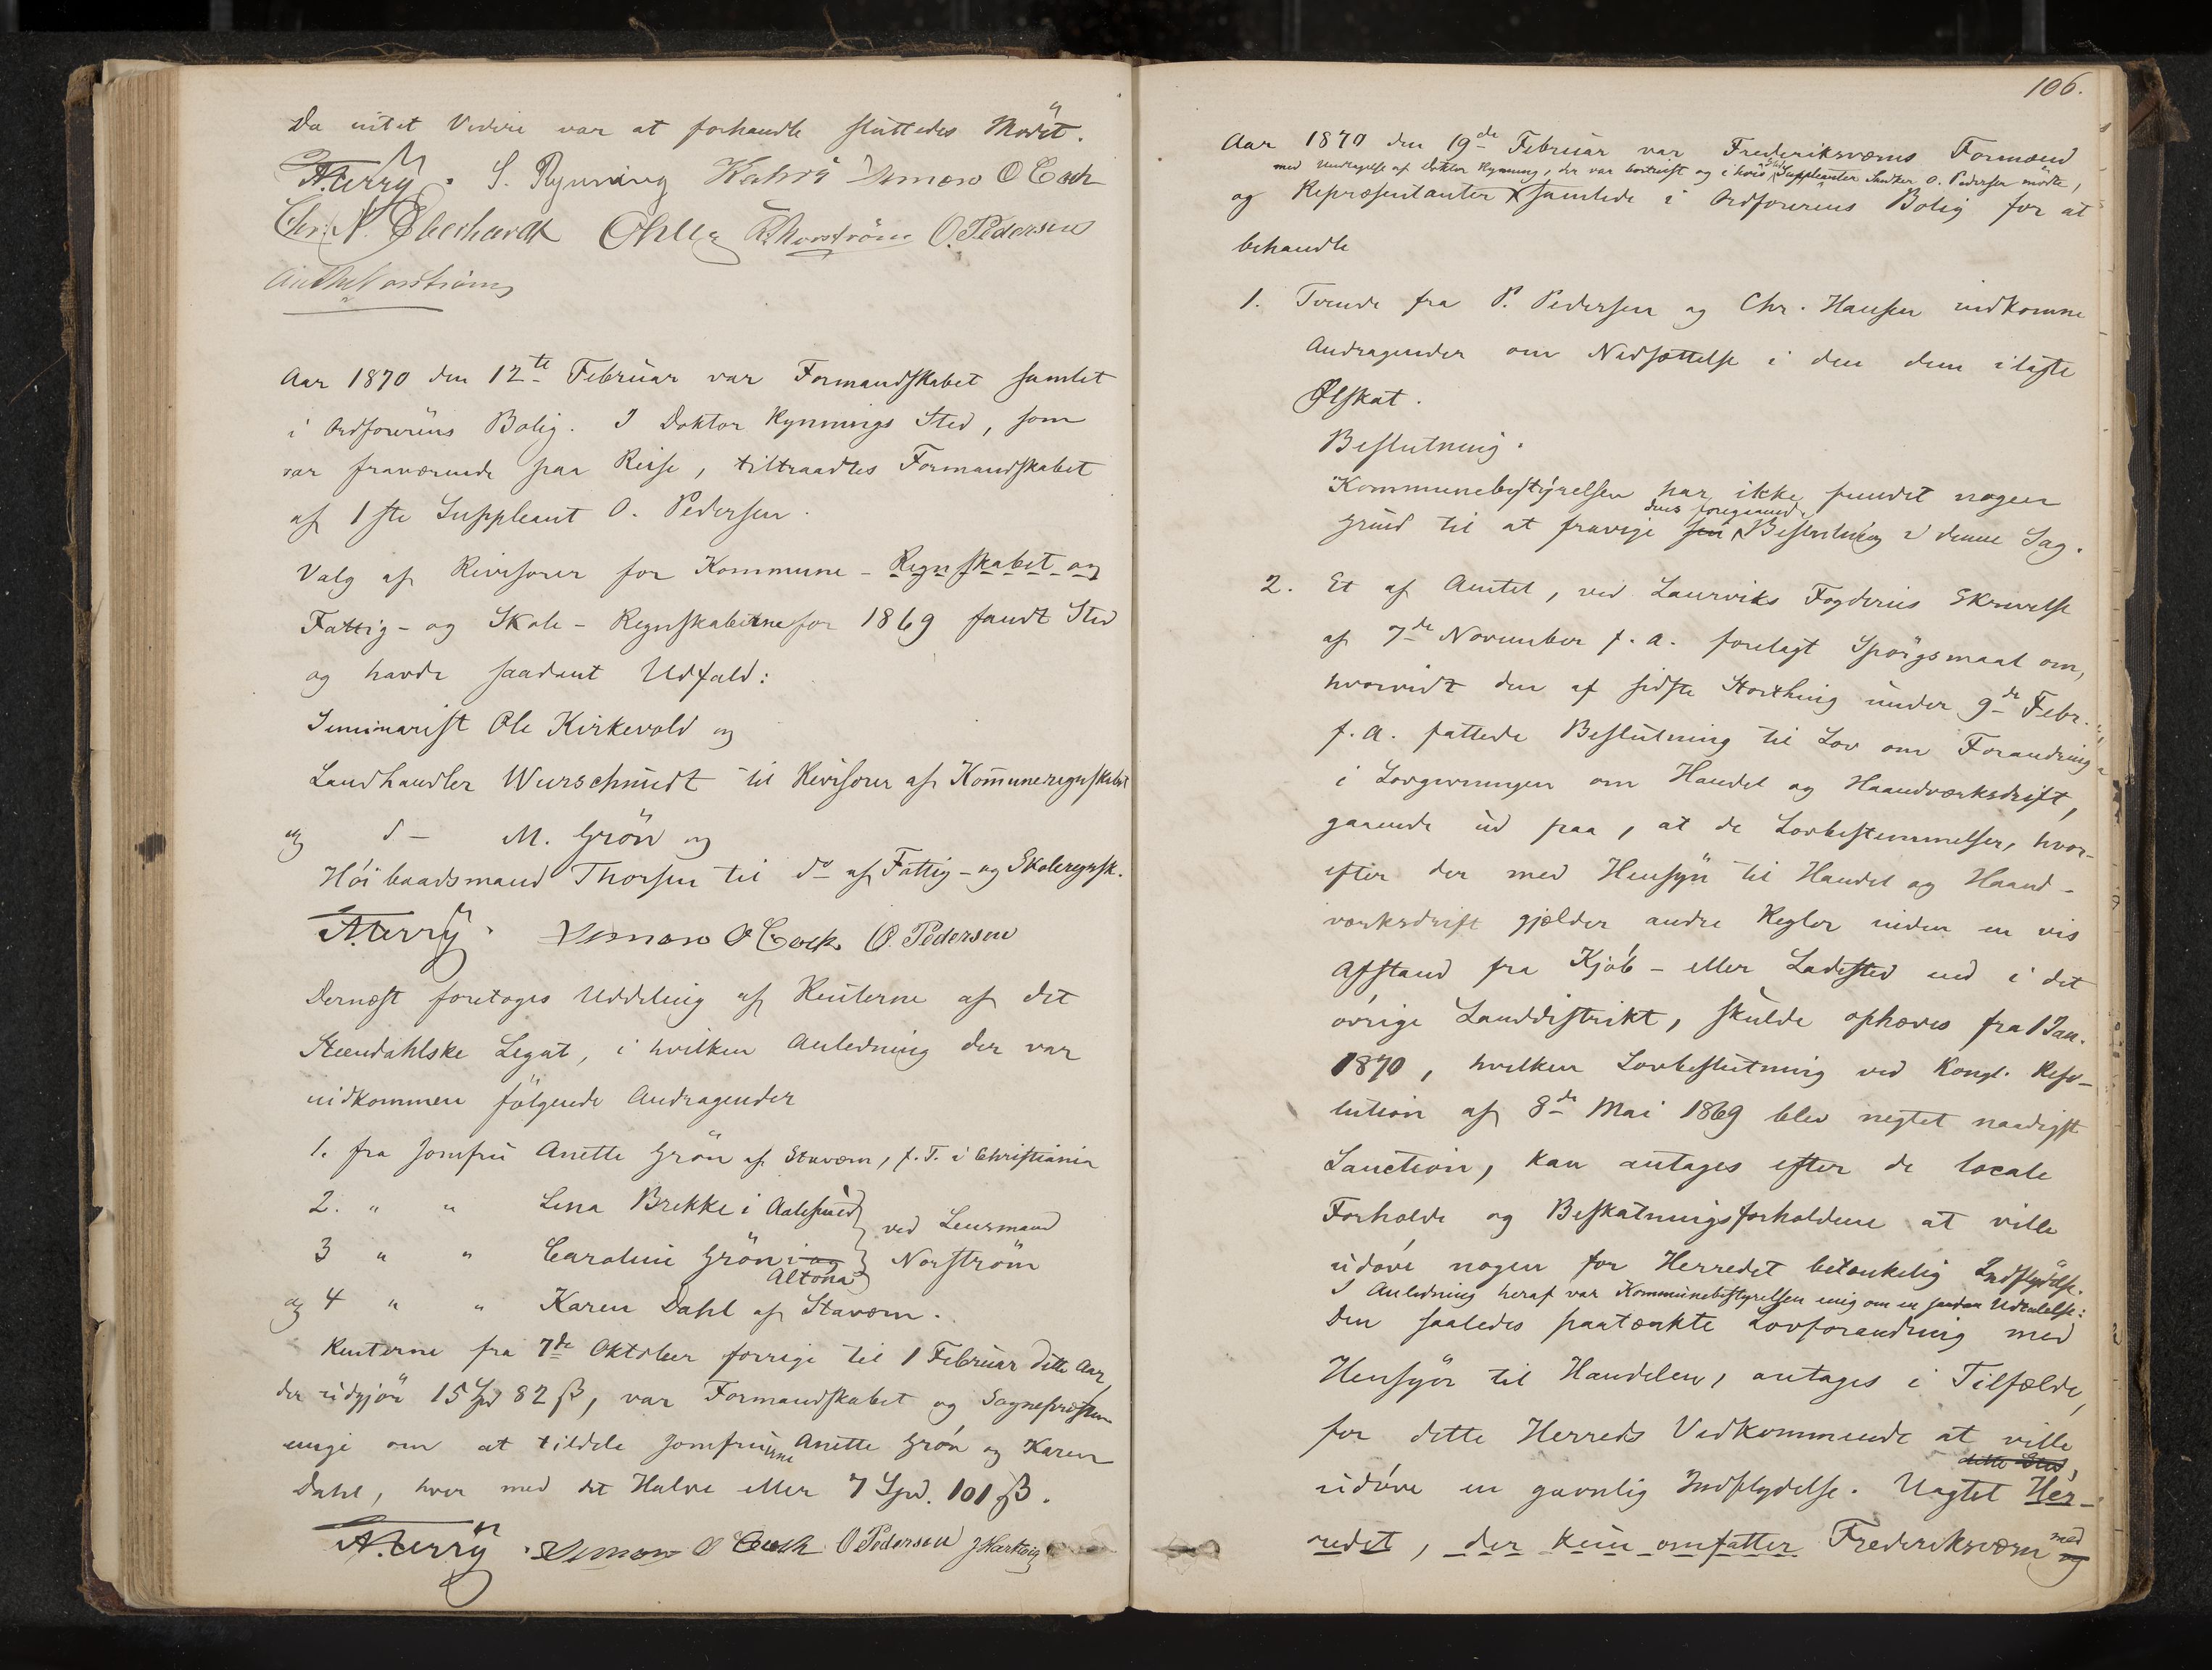 Da intet Videre var at forhandle sluttedes Mødet.
S. Rynning O Coch
Chr. N. Eberhardt O. Pedersen
Aar 1870 den 12te Februar var Formandskabet samlet
i Ordførerens Bolig. I Doktor Rynnings Sted, som
var fraværende paa Reise, tiltraadtes Formandskabet
af 1ste Suppleant O. Pedersen.
Valg af Revisorer for Kommune-Regnskabet og
Fattig- og Skole-Regnskaberne for 1869 fandt Sted
og havde saadant Udfald:
Seminarist Ole Kirkevold og
Landhandler Wurschmidt til Revisorer af Kommuneregnskabet
og d- M. Grön og
Höibaadsmand Thorsen til do af Fattig- og Skoleregnsk.
O Coch O. Pedersen
Dernæst foretoges Uddeling af Renterne af det
Steendahlske Legat, i hvilken Anledning der var
indkommen følgende Andragender
1. fra Jomfru Anette Grön af Stavern, f. T. i Christiania
2. " " Lina Brekke i Aalesund
ved Lensmand
3 " " Caroline Grön i og Norström
Altona
og 4 " " Karen Dahl af Stavern.
Renterne fra 7de Oktober forrige til 1 Februar dette Aar,
der udgjör 15 Spd 82 ß, var Formandskabet og Sognepræsten
enige om at tildele Jomfruerne Anette Grön og Karen
Dahl, hver med det Halve eller 7 Spd. 101 ß.
O Coch O Pedersen J Hartvig
106.
Aar 1870 den 19de Februar var Frederiksværns Formænd
med Undtagelse af Doktor Rynning, der var bortreist og i hvis Sted Suppleanten O. Pedersen mödte,
og Repræsentanter samlede i Ordførerens Bolig for at
behandle
1. Tvende fra P. Pedersen og Chr. Hansen indkomne
Andragender om Nedsættelse i den dem ilagte
Ølskat.
Beslutning.
Kommunebestyrelsen har ikke fundet nogen
dens foregaaende
Grund til at fravige sin Beslutning i denne Sag.
2. Et af Amtet, ved Laurviks Fogderies Skrivelse
af 7de November f. a. forelagt Spörgsmaal om,
hvorvidt den af sidste Storthing under 9de Febr.
f. a. fattede Beslutning til Lov om Forandring
i Lovgivningen om Handel og Haandværksdrift,
gaaende ud paa, at de Lovbestemmelser, hvor-
efter der med Hensyn til Handel og Haand-
værksdrift gjælder andre Regler inden en vis
Afstand fra Kjöb- eller Ladested end i det
övrige Landdistrikt, skulde ophæves fra 1 Jan.
1870, hvilken Lovbeslutning ved Kongl. Reso-
lution af 8de Mai 1869 blev negtet naadigst
Sanction, kan antages efter de locale
Forholde og Beskatningsforholdene at ville
udöve nogen for Herredet betænkelig Indflydelse.
I Anledning heraf var Kommunebestyrelsen enig om en saadan Udtalelse:
Den saaledes paatænkte Lovforandring med
Hensyn til Handelen, antages i Tilfælde,
for dette Herreds Vedkommende at ville
dette Sted,
udöve en gavnlig Indflydelse. Uagtet Her-
redet, der kun omfatter Frederiksværn med og